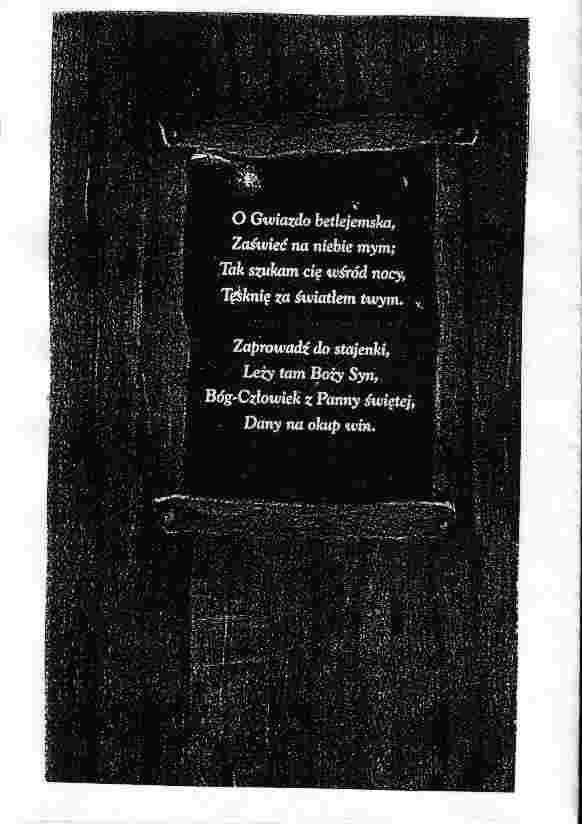 O Gwiazdo betlejemska,
Zaświeć na niebie mym;
Tak szukam cię wśród nocy,
Tęsknię za światłem twym.
Zaprowadź do stajenki,
Leży tam Boży Syn,
Bóg-Człowiek z Panny świętej,
Dany na okup win.